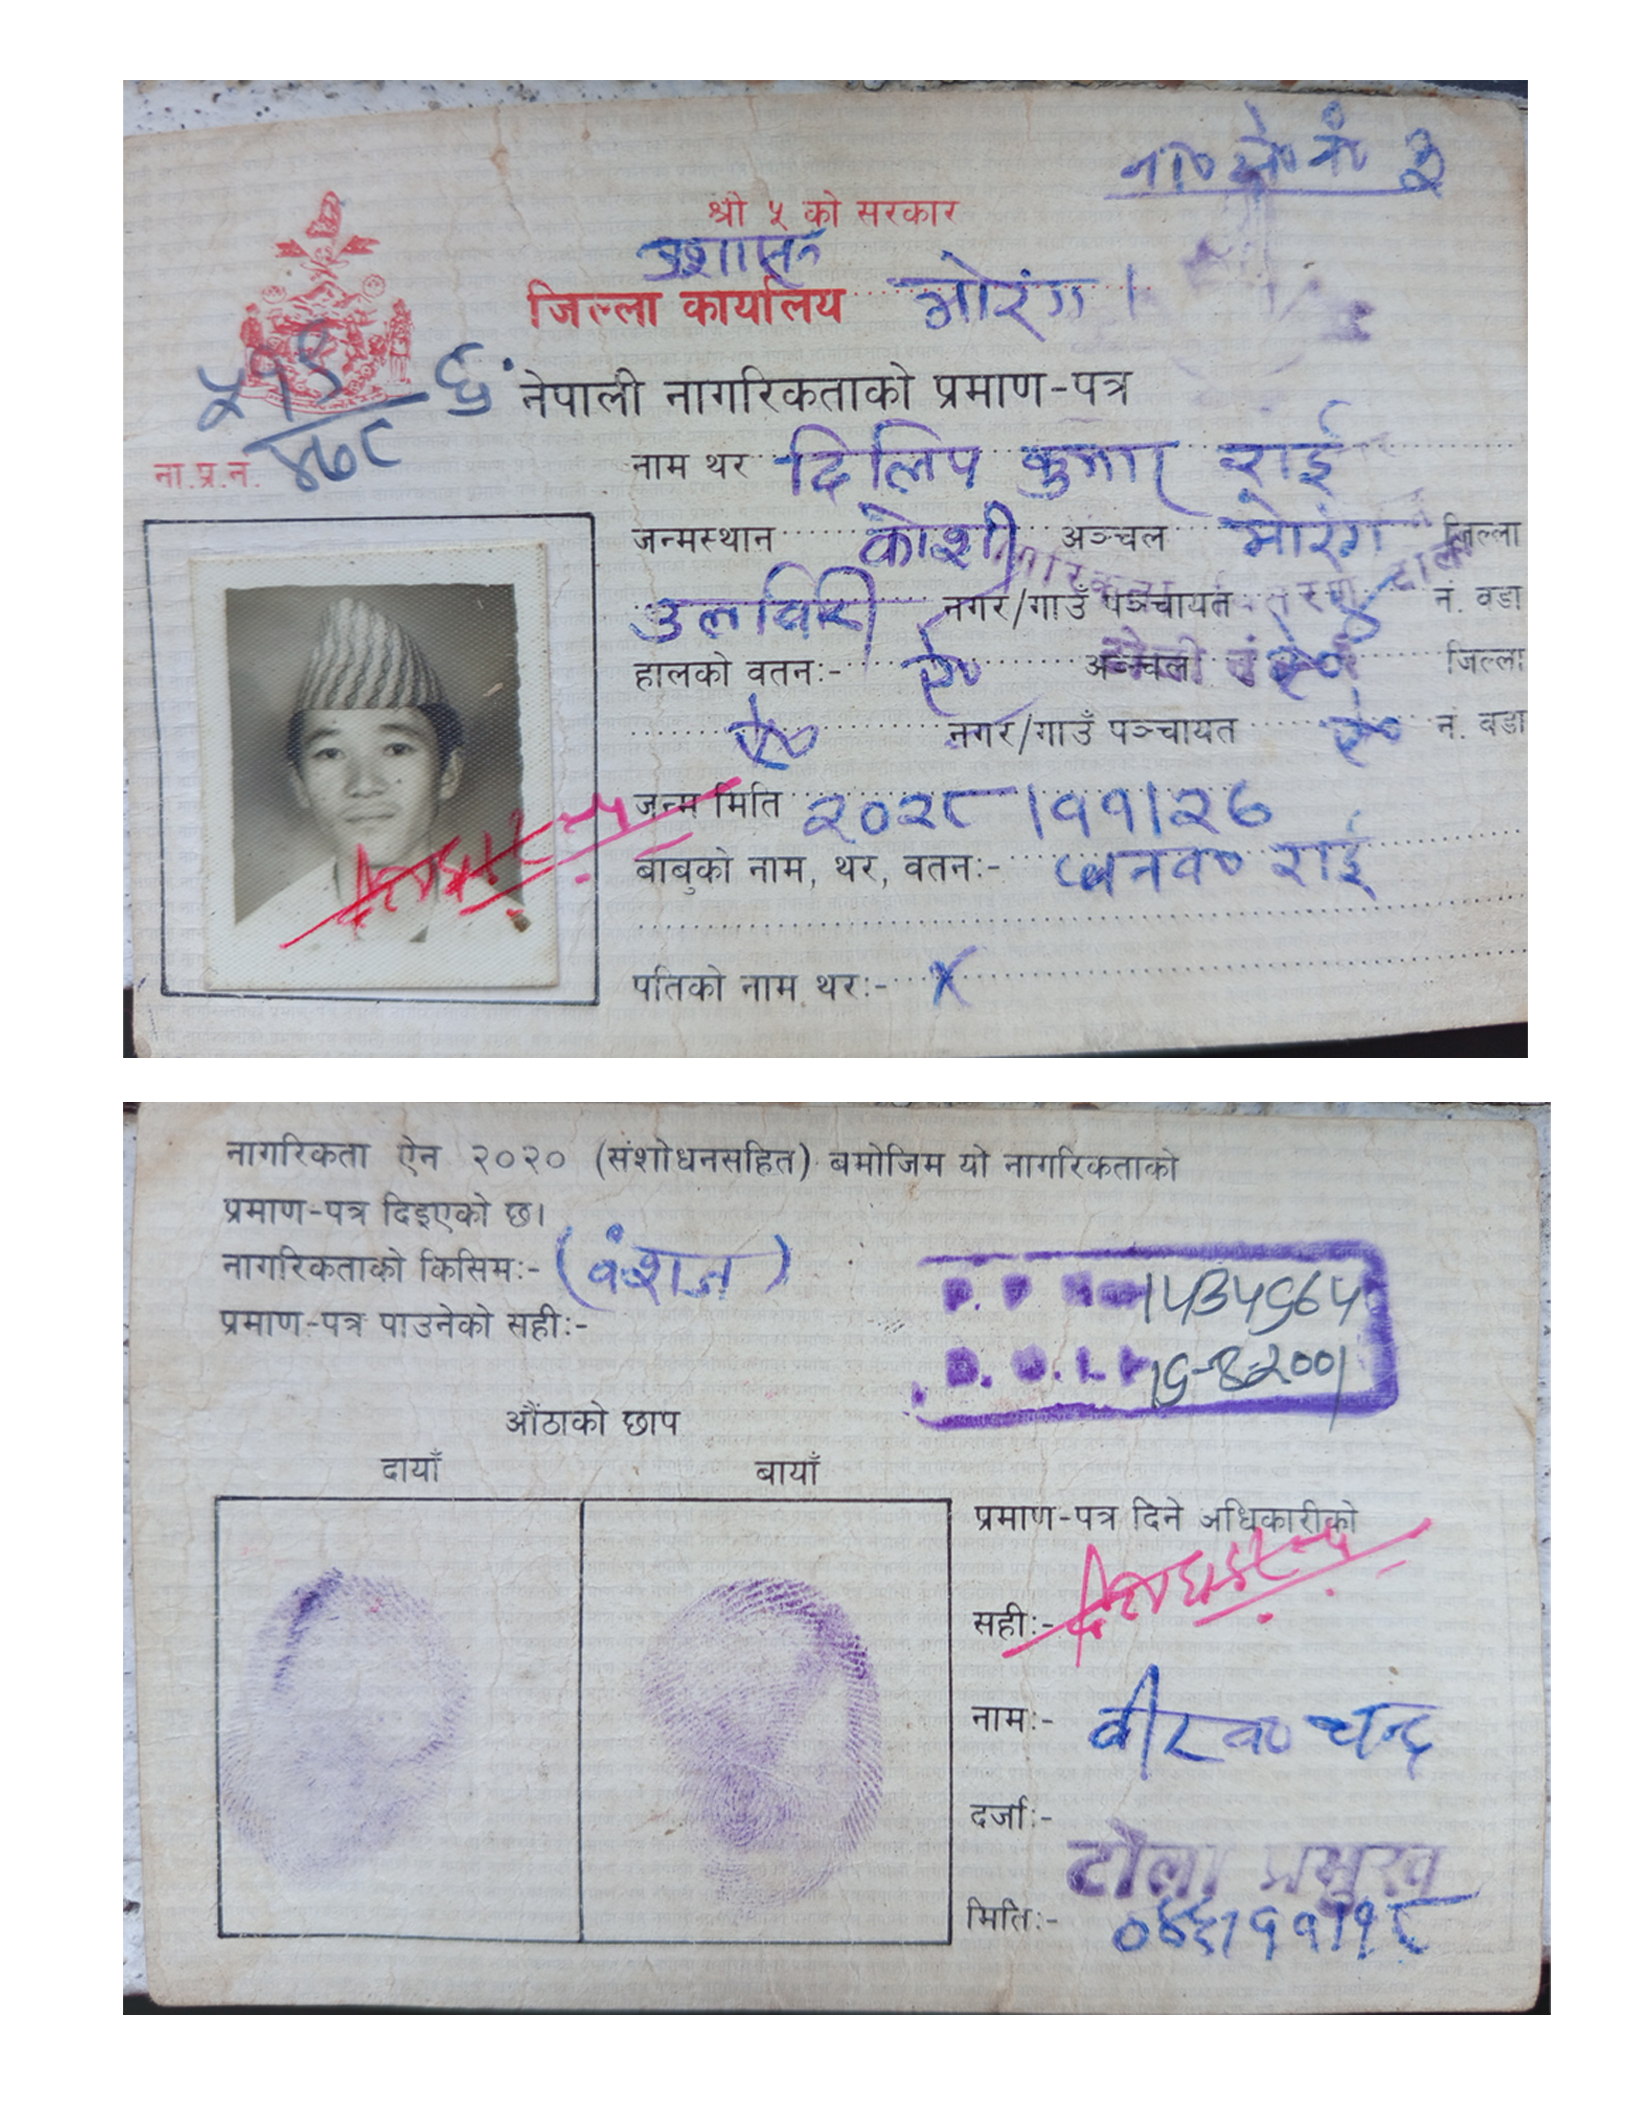 ना० टो० नं० ३
श्री ५ को सरकार
प्रशासन
जिल्ला कार्यालय मोरंग ।
नेपाली नागरिकताको प्रमाण-पत्र
ना.प्र.न. ४७८
नाम थर दिलिप कुमार राई
जन्मस्थान कोशी अञ्चल मोरंग जिल्ला
उलाविरी नगर/गाउँ पञ्चायत ४ न. वडा
हालको वतन:- ऐ० अञ्चल ऐ० जिल्ला
ऐ० नगर/गाउँ पञ्चायत ऐ० न. वडा
जन्म मिति २०२८।११।२६
बाबुको नाम, थर, वतन:- राई
पतिको नाम थर:- X
नागरिकता ऐन २०२० (संशोधनसहित) बमोजिम यो नागरिकताको
प्रमाण-पत्र दिइएको छ।
नागरिकताको किसिम:- (वंशज)
प्रमाण-पत्र पाउनेको सही:-
P. P. No 1434564
D. O. I. 19-8-2001
औंठाको छाप
दायाँ बायाँ
प्रमाण-पत्र दिने अधिकारीको
सही:-
नाम:- वीर व० चन्द
दर्जा:- टोली प्रमुख
मिति:- ०४६।११।१८